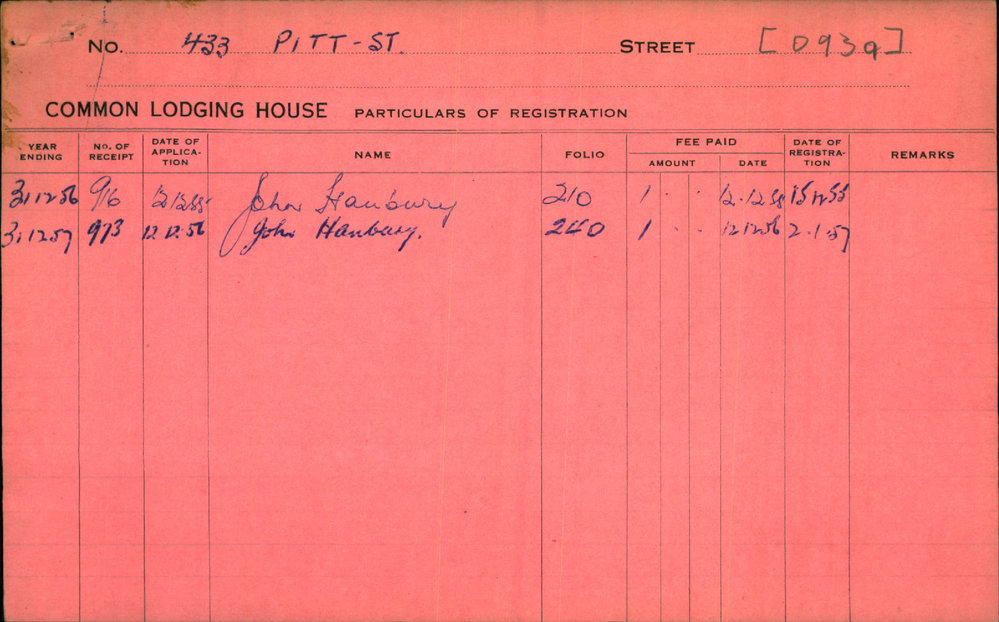 No. 433 PITT-ST. STREET [0939]
COMMON LODGING HOUSE PARTICULARS OF REGISTRATION
YEAR ENDING NO. OF RECEIPT DATE OF APPLICA-TION NAME FOLIO FEE PAID AMOUNT DATE DATE OF REGISTRA-TION REMARKS
31.12.56 916 12.12.55 John Hanbury 210 1 . . 12.12.55 15.12.55
31.12.57 973 12.12.56 John Hanbury. 240 1 . . 12.12.56 2.1.57